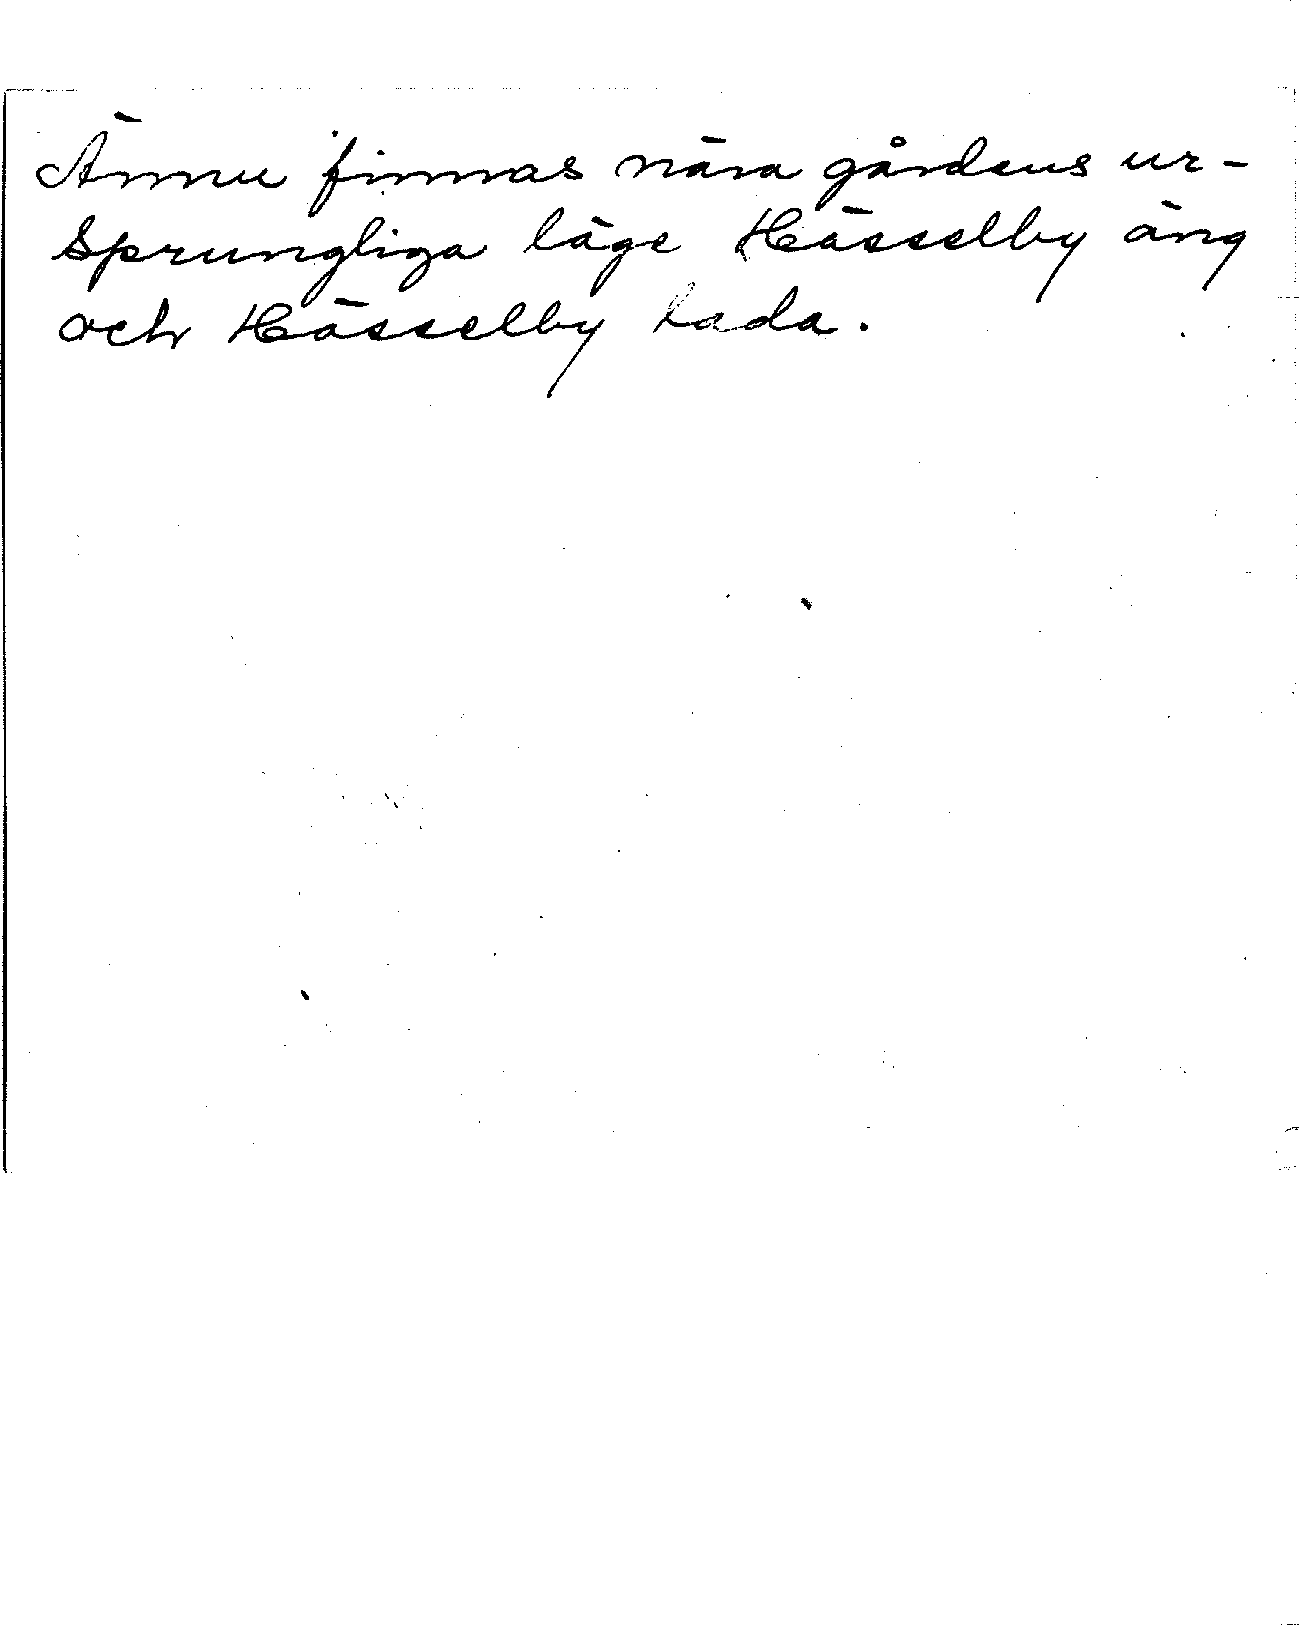 Ännu finnas nära gårdens ur-
sprungliga läge Hässelby äng
och Hässelby lada.